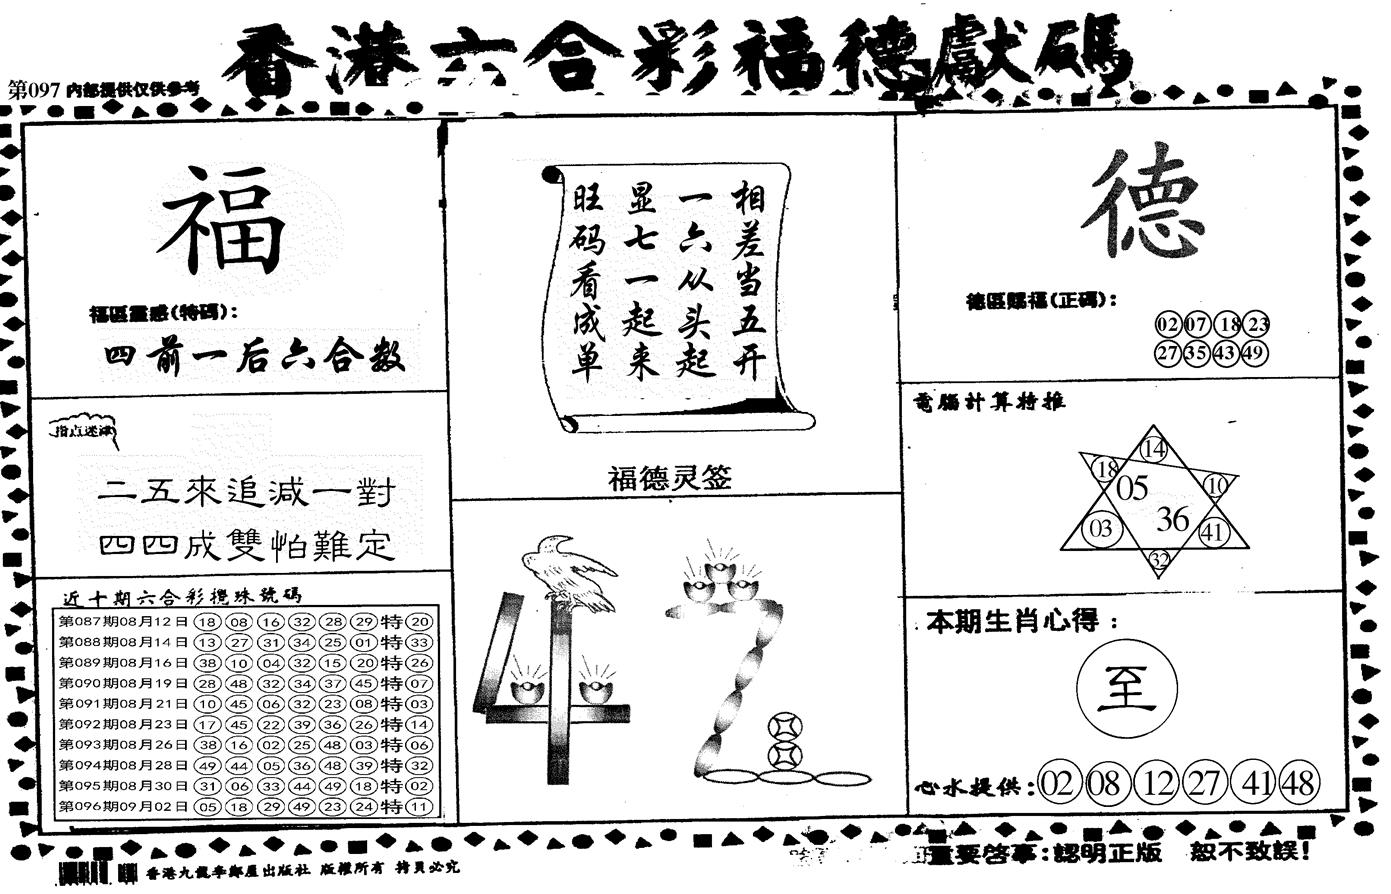 香港六合彩福德獻碼
第097 内部提供仅供参考
福
福區靈感(特碼):
四前一后六合数
指点迷津
二五來追減一對
四四成雙怕難定
近十期六合彩攪珠號碼
第087期08月12日 18 08 16 32 28 29 特 20
第088期08月14日 13 27 31 34 25 01 特 33
第089期08月16日 38 10 04 32 15 20 特 26
第090期08月19日 28 48 32 34 37 45 特 07
第091期08月21日 10 45 06 32 23 08 特 03
第092期08月23日 17 45 22 39 36 26 特 14
第093期08月26日 38 16 02 25 48 03 特 06
第094期08月28日 49 44 05 36 48 39 特 32
第095期08月30日 31 06 33 44 49 18 特 02
第096期09月02日 05 18 29 49 23 24 特 11
相差当五开
一六从头起
显七一起来
旺码看成单
福德灵签
42
德
德區賜福(正碼):
02 07 18 23
27 35 43 49
電腦計算特推
14
18 05 10
03 36 41
32
本期生肖心得:
至
心水提供: 02 08 12 27 41 48
重要啓事:認明正版 恕不致誤!
香港九龍李鄭屋出版社 版權所有 拷貝必究